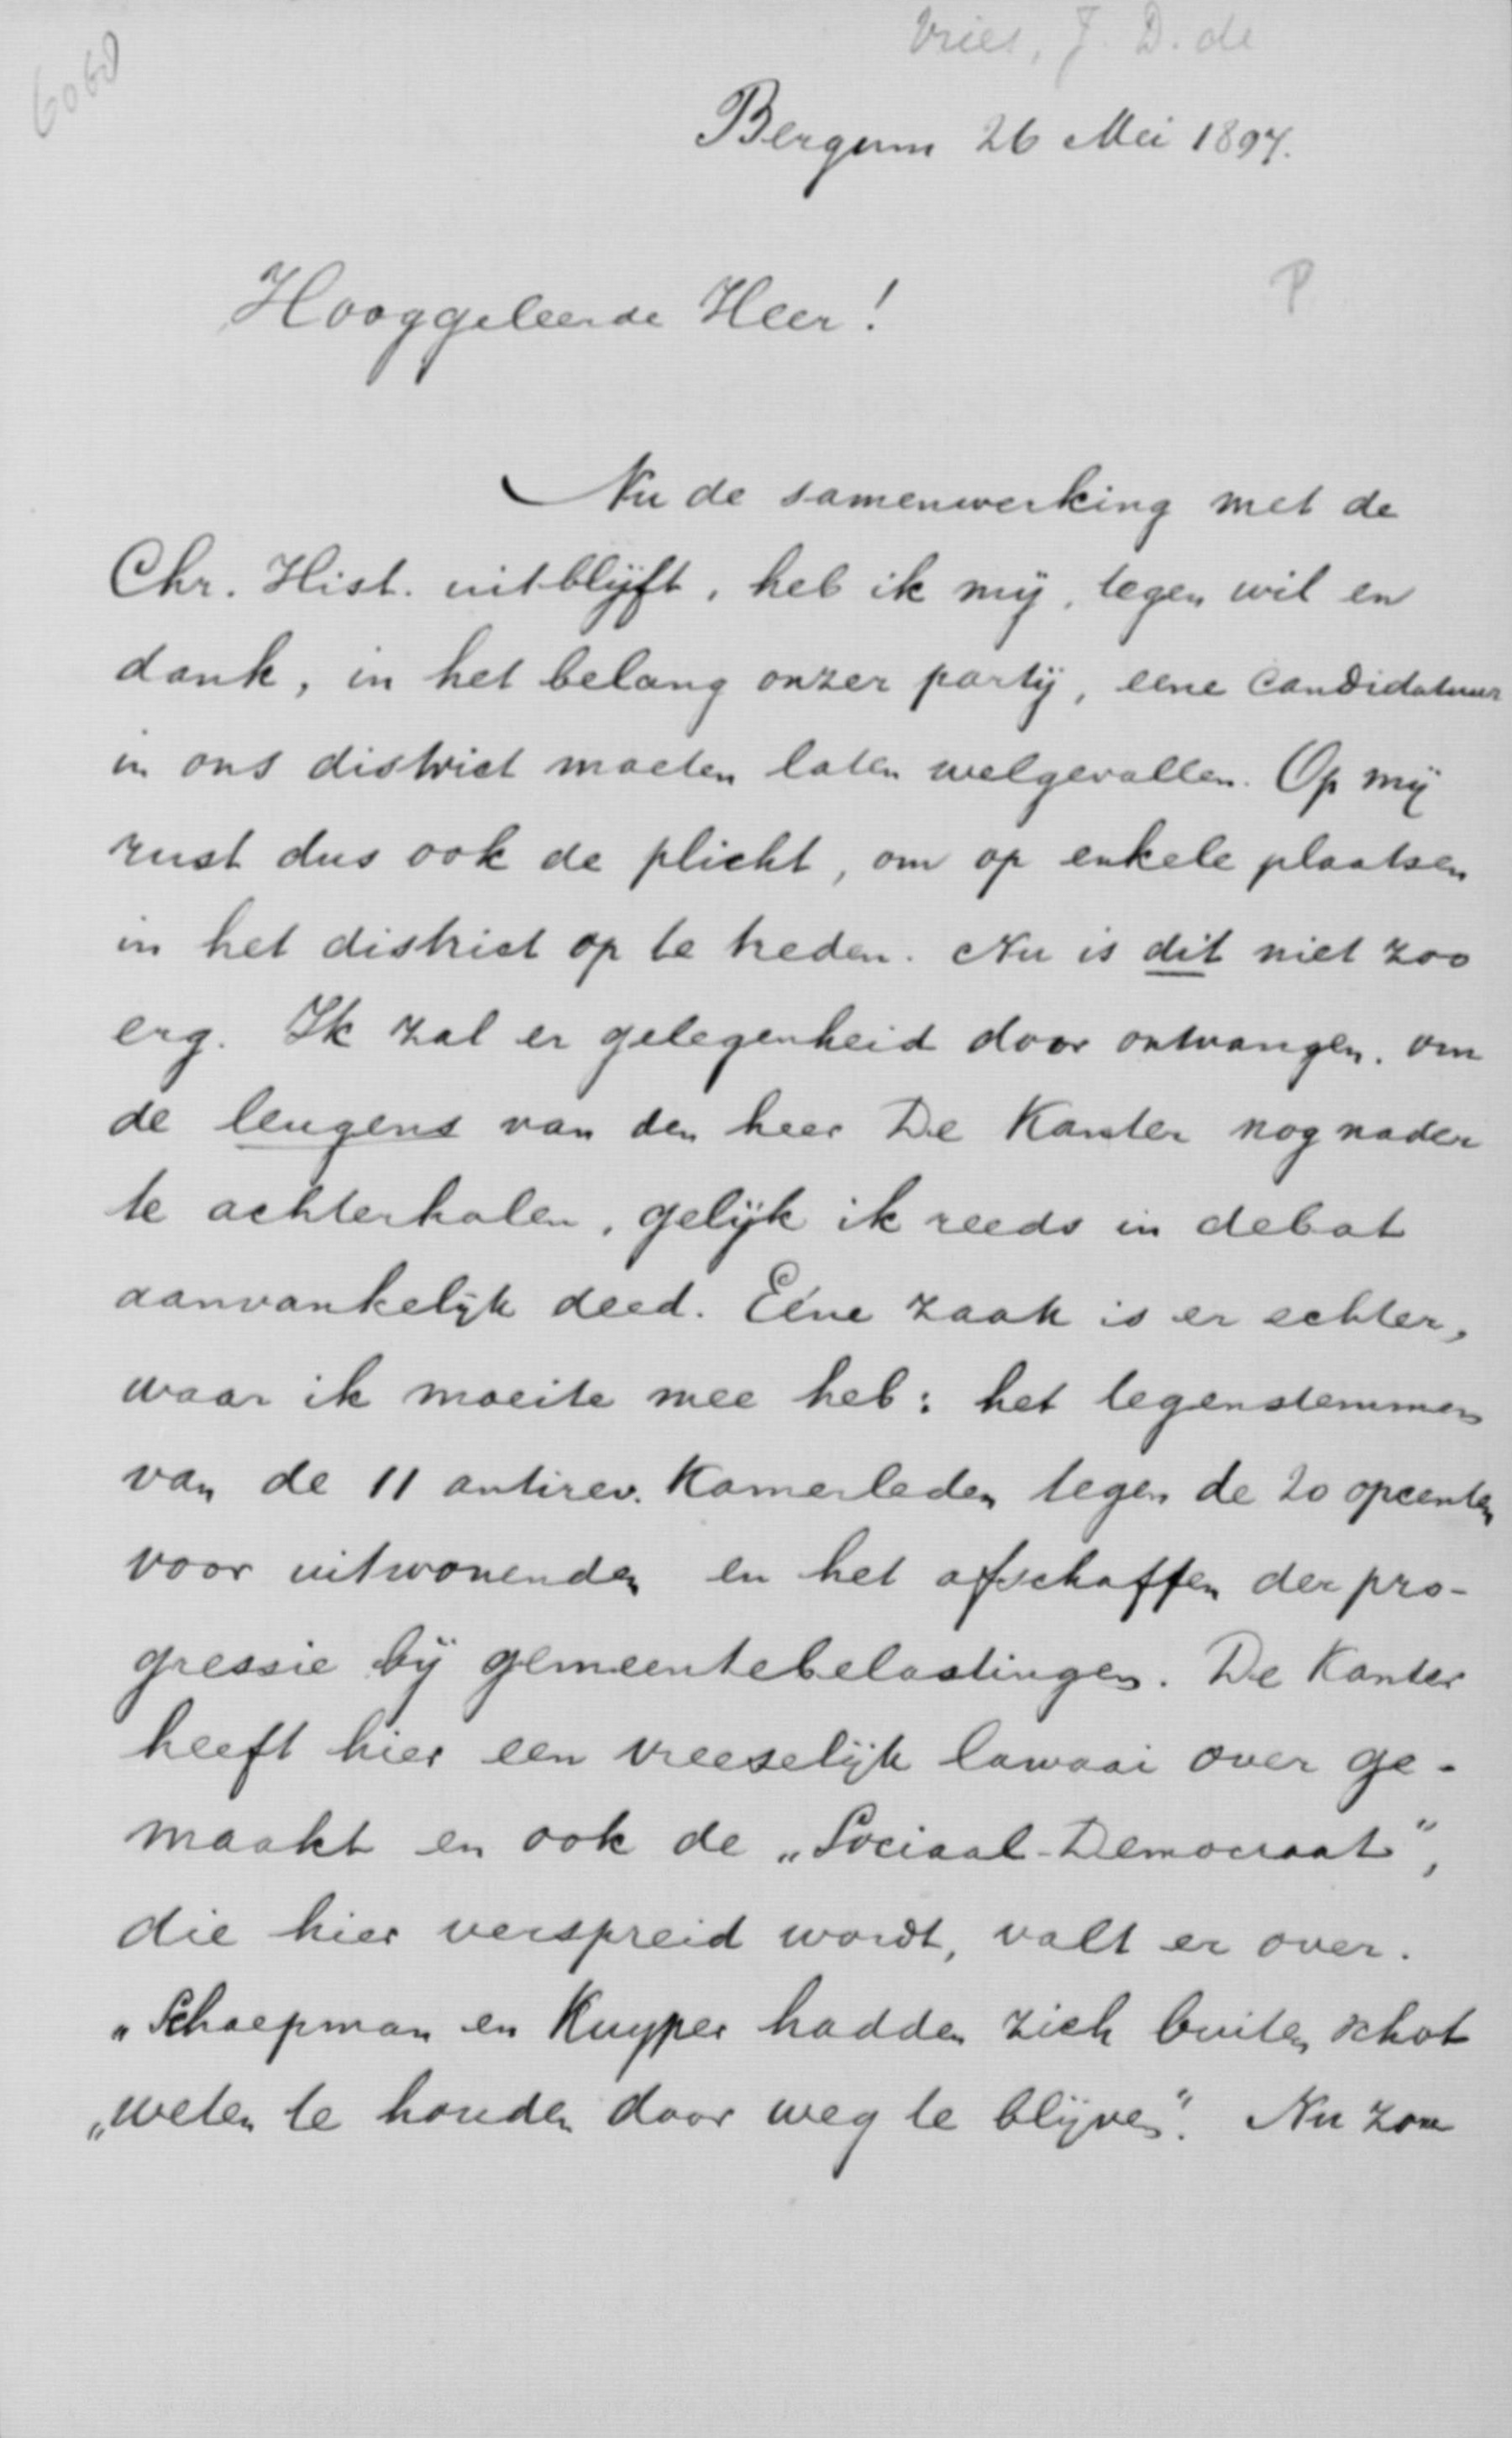 Vries, J. D. de
6060
Bergum 26 Mei 1897.
P
Hooggeleerde Heer!
Nu de samenwerking met de
Chr. Hist. uitblijft, heb ik mij, tegen wil en
dank, in het belang onzer partij, eene candidatuur
in ons district moeten laten welgevallen. Op mij
rust dus ook de plicht, om op enkele plaatsen
in het district op te treden. Nu is dit niet zoo
erg. Ik zal er gelegenheid door ontvangen, om
de leugens van den heer De Kanter nog nader
te achterhalen, gelijk ik reeds in debat
aanvankelijk deed. Eéne zaak is er echter,
waar ik moeite mee heb: het tegenstemmen
van de 11 antirev. Kamerleden tegen de 20 opcenten
voor uitwonenden en het afschaffen der pro-
gressie bij gemeentebelastingen. De Kanter
heeft hier een vreeselijk lawaai over ge-
maakt en ook de „Sociaal-Democraat",
die hier verspreid wordt, valt er over.
„Schaepman en Kuyper hadden zich buiten schot
„weten te houden door weg te blijven". Nu zou